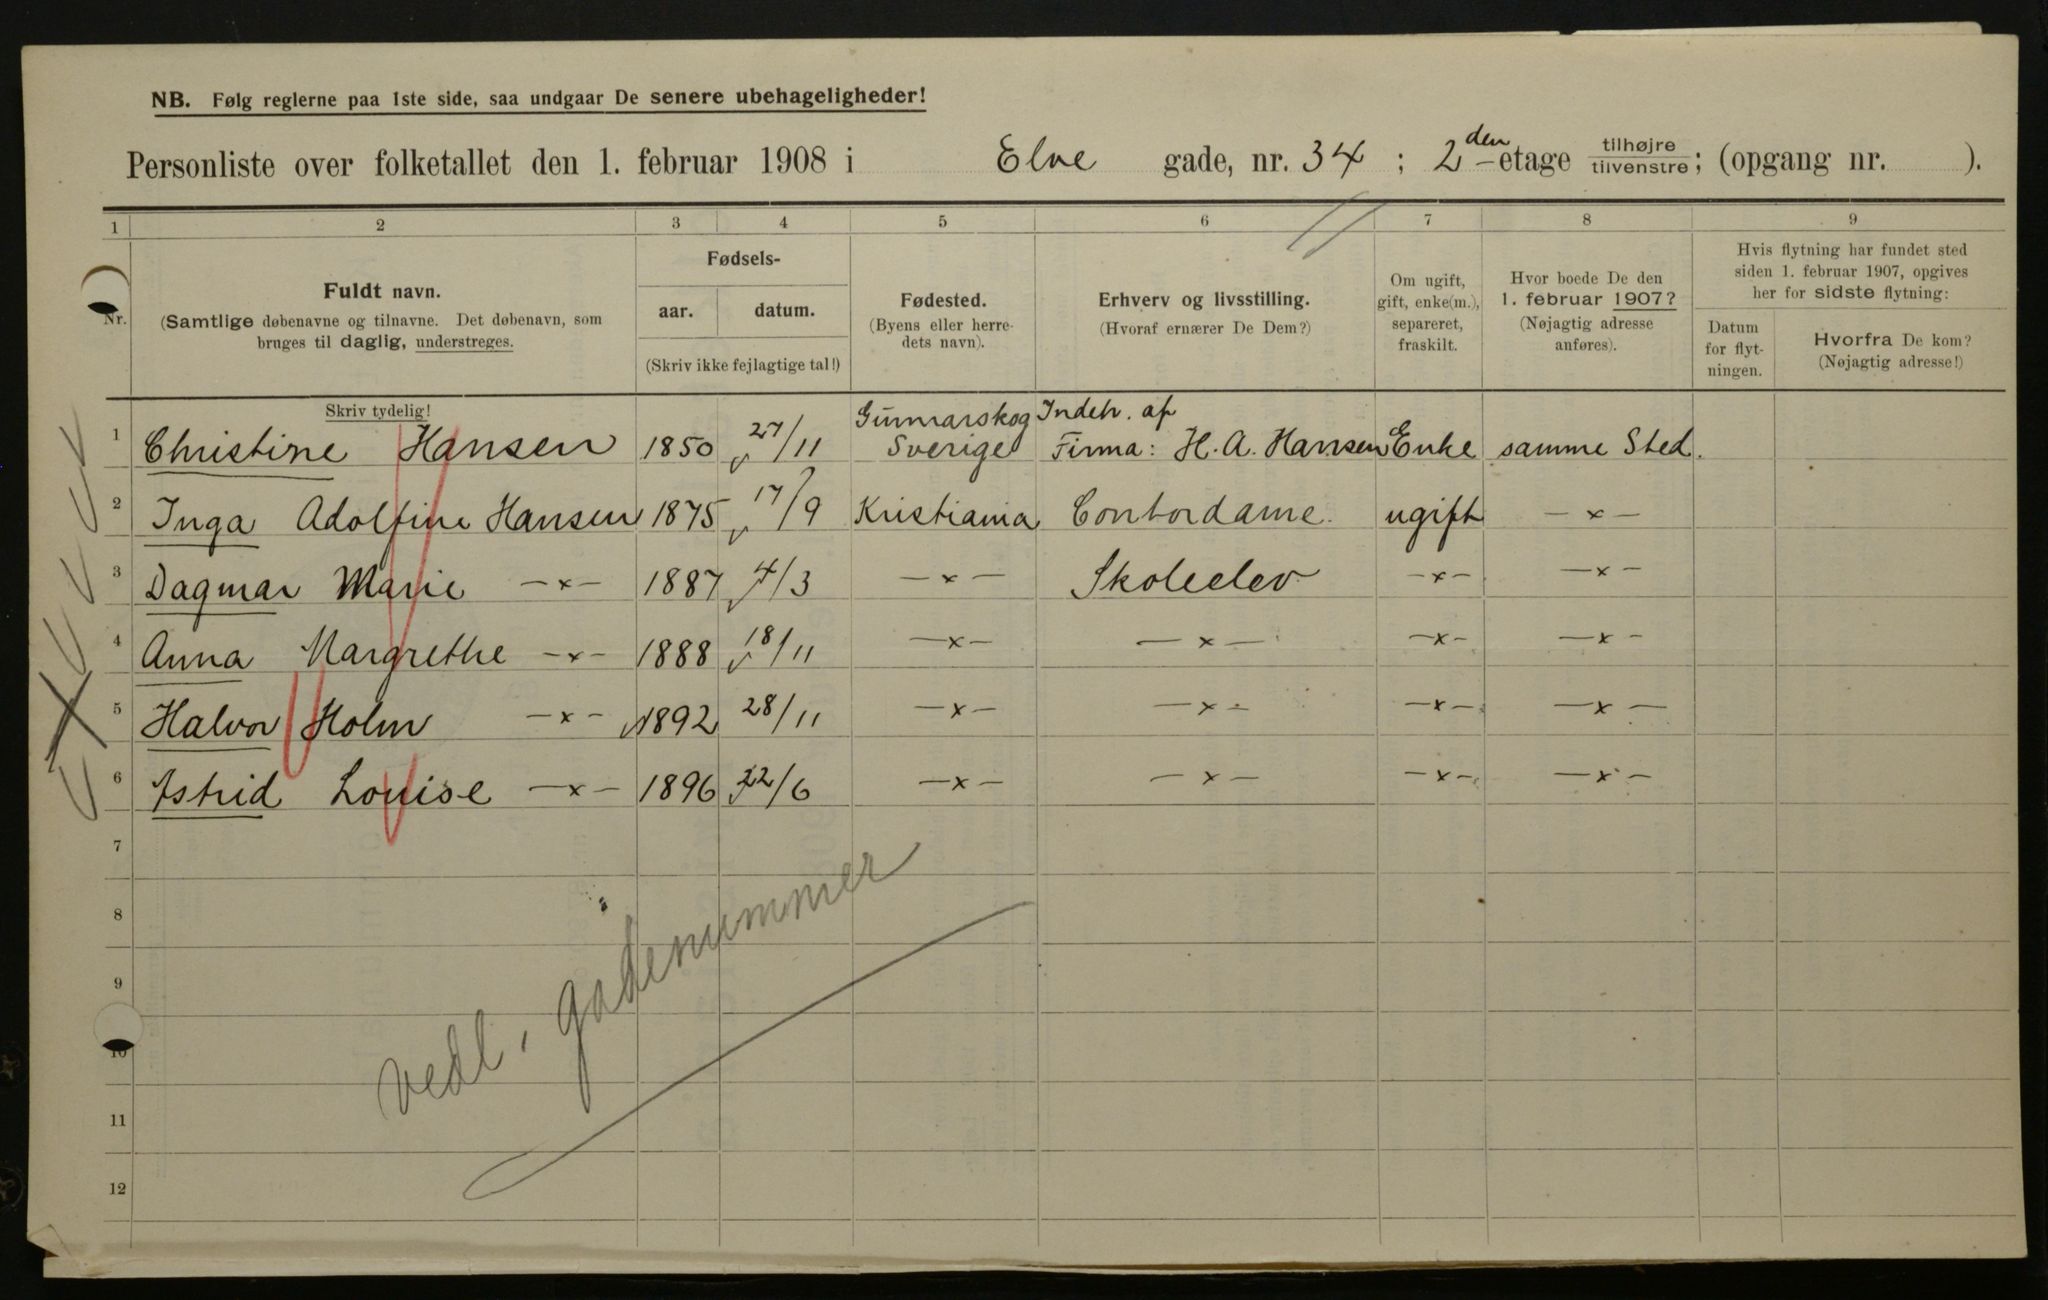 NB. Følg reglerne paa 1ste side, saa undgaar De senere ubehageligheder!
Personliste over folketallet den 1. februar 1908 i Elve gade, nr. 34 ; 2den -etage tilhøjre tilvenstre ; (opgang nr. ).
1 2 3 4 5 6 7 8 9
Nr.
Fuldt navn.
(Samtlige døbenavne og tilnavne. Det døbenavn, som
bruges til daglig, understreges.
Fødsels-
aar. datum.
(Skriv ikke fejlagtige tal!)
Fødested.
(Byens eller herre-
dets navn).
Erhverv og livsstilling.
(Hvoraf ernærer De Dem?)
Om ugift,
gift, enke(m.),
separeret,
fraskilt.
Hvor boede De den
1. februar 1907?
(Nøjagtig adresse
anføres).
Hvis flytning har fundet sted
siden 1. februar 1907, opgives
her for sidste flytning:
Datum
for flyt-
ningen.
Hvorfra De kom?
(Nøjagtig adresse!)
Skriv tydelig!
Gunnarskog Indeh. af
1 Christine Hansen 1850 27/11 Sverige Firma: H. A. Hansen Enke samme Sted.
2 Inga Adolfine Hansen 1875 17/9 Kristiania Contordame. ugift —x—
3 Dagmar Marie —x— 1887 4/3 —x— Skoleelev —x— —x—
4 Anna Margrethe —x— 1888 18/11 —x— —x— —x— —x—
5 Halvor Holm —x— 1892 28/11 —x— —x— —x— —x—
6 Astrid Louise —x— 1896 22/6 —x— —x— —x— —x—
7
8
9
10
11
12
vedl. gadenummer